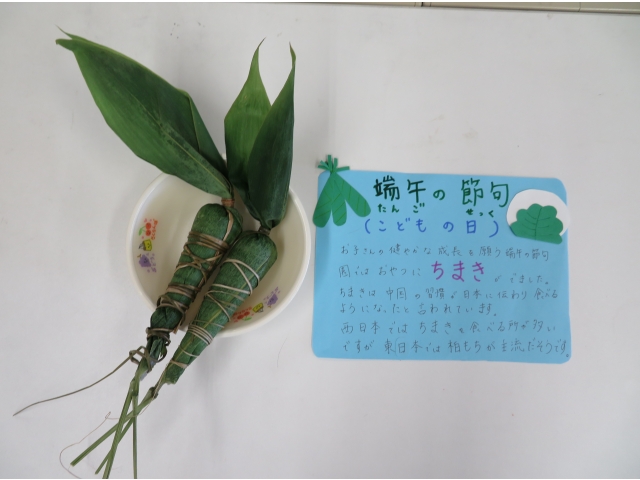 端午の節句
たんご せっく
(こどもの日)
お子さんの健やかな成長を願う端午の節句
園ではおやつにちまきがでました。
ちまきは中国の習慣が日本に伝わり食べる
ようになったと言われています。
西日本ではちまきを食べる所が多い
ですが東日本では柏もちが主流だそうです。